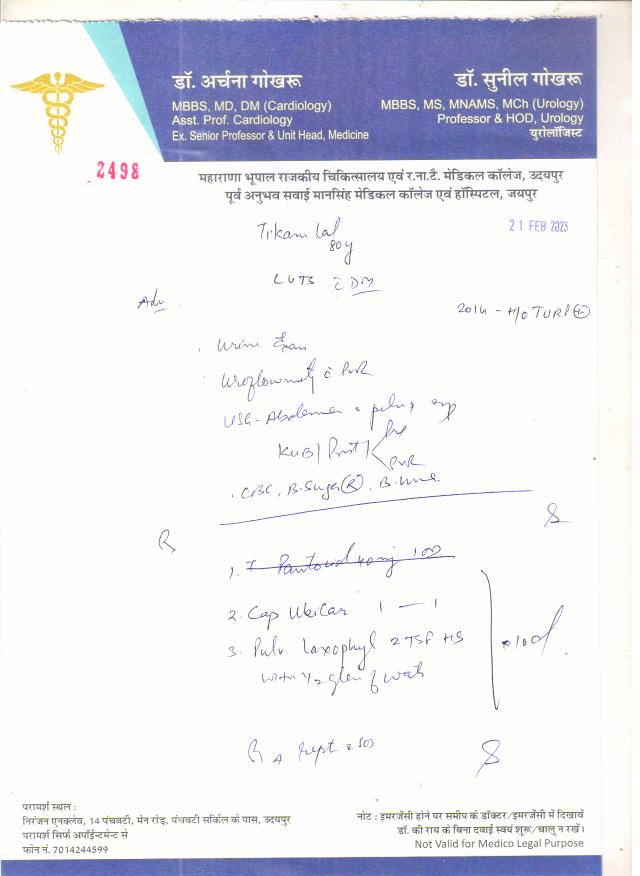 डॉ. अर्चना गोखरू
MBBS, MD, DM (Cardiology)
Asst. Prof. Cardiology
Ex. Senior Professor & Unit Head, Medicine
डॉ. सुनील गोखरू
MBBS, MS, MNAMS, MCh (Urology)
Professor & HOD, Urology
युरोलॉजिस्ट
2498
महाराणा भूपाल राजकीय चिकित्सालय एवं र.ना.टै. मेडिकल कॉलेज, उदयपुर
पूर्व अनुभव सवाई मानसिंह मेडिकल कॉलेज एवं हॉस्पिटल, जयपुर
21 FEB 2023
Tikam Lal
80y
LUTS c̄ DM
Adv
2014 - H/O TURP +
Urine Exam
Uroflowmety c̄ PVR
USG - Abdomen
KUB / Prost / Pre
PVR
CBC, B. Sugar (R), B. Urea
R
1. T Pantocid 40mg 1OD
2. Cap 1 — 1
3. Pulv. Laxophyl 2 TSF HS
with 1/2 glass of wat
x 10d
परामर्श स्थल :
निरंजन एनक्लेव, 14 पंचवटी, मेन रोड़, पंचवटी सर्किल के पास, उदयपुर
परामर्श सिर्फ अपॉईन्टमेन्ट से
फोन नं. 7014244599
नोट : इमरजेंसी होने पर समीप के डॉक्टर/इमरजेंसी में दिखावें
डॉ. की राय के बिना दवाई स्वयं शुरू/चालु न रखें।
Not Valid for Medico Legal Purpose